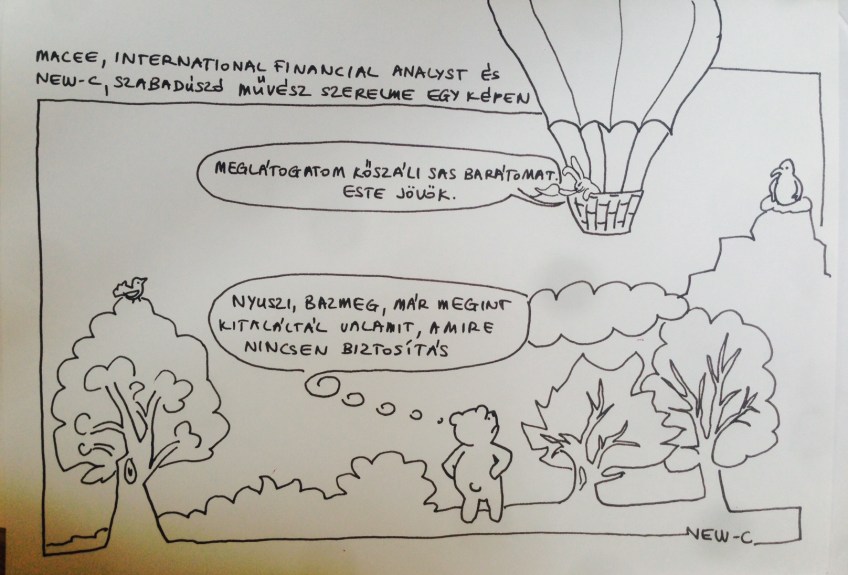 MACEE, INTERNATIONAL FINANCIAL ANALYST és
NEW-C, SZABADÚSZÓ MŰVÉSZ SZERELME EGY KÉPEN
MEGLÁTOGATOM KŐSZÁLI SAS BARÁTOMAT.
ESTE JÖVÖK.
NYUSZI, BAZMEG, MÁR MEGINT
KITALÁLTÁL VALAMIT, AMIRE
NINCSEN BIZTOSÍTÁS
NEW-C